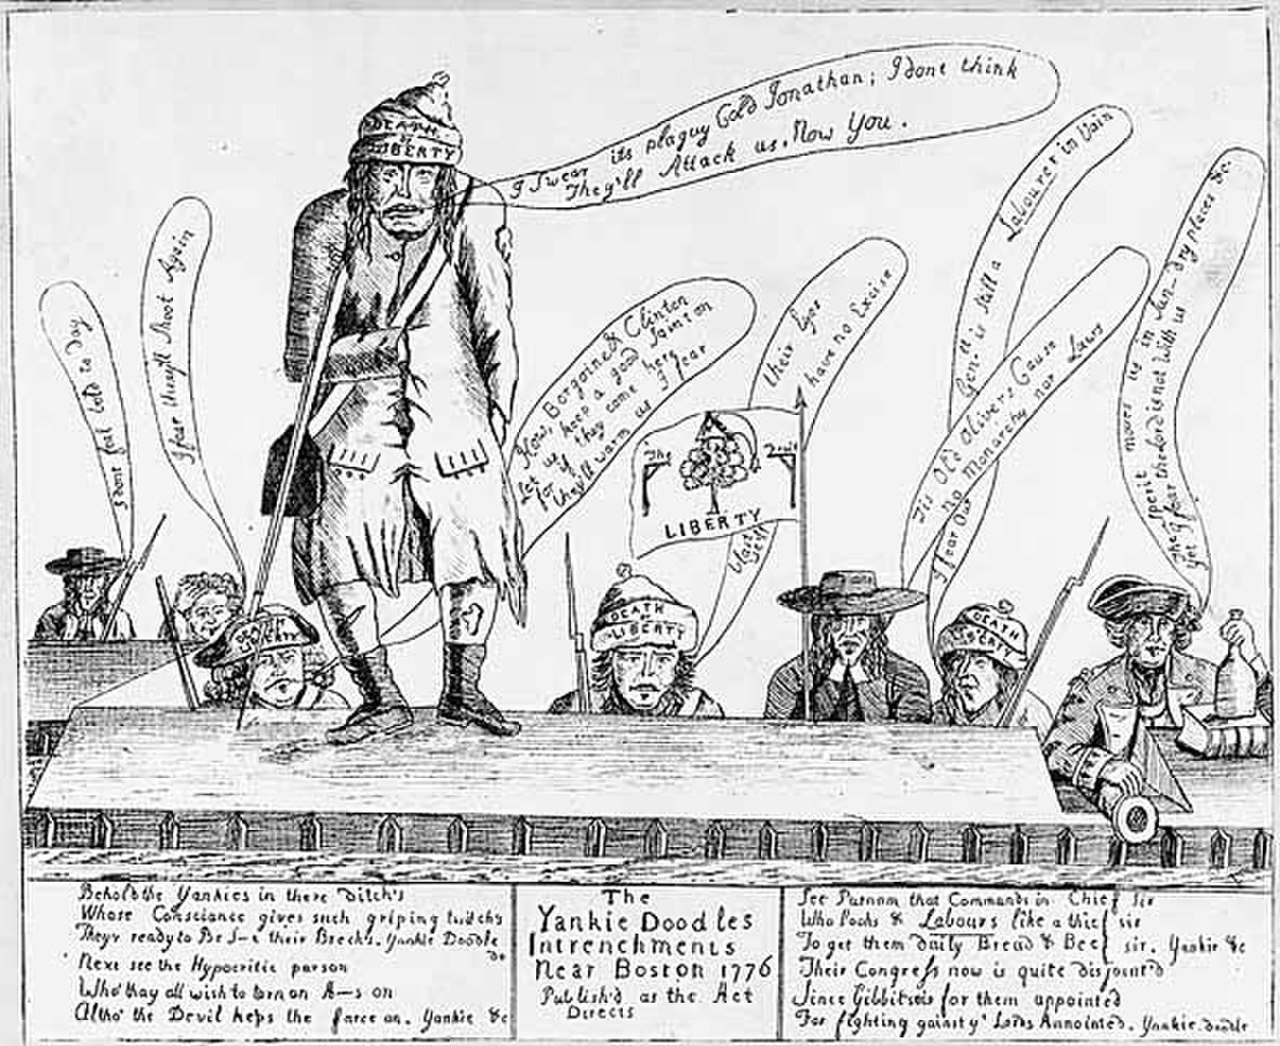 I dont feal bold to Day
I fear they'll shoot Again
DEATH
or
LIBERTY
I Swear its plaguy Cold Jonathan; I dont think
They'll Attack us. Now You.
DEATH
LIBERTY
Howe, Borgoine & Clinton
Let us keep a good Joint on
for if they come here
they'll warm us I fear
The
LIBERTY
their Eyes
have no Excise
DEATH
LIBERTY
Genll is still a Labourer in Vain
Tis Old Olivers Cause
no Monarchy nor Laws
I fear Our
DEATH
The Sperit moves us in Sun-dry places &c
yet I fear the Lord is not With us
Behold the Yankies in there ditch's
Whose Consciance gives such griping twitchs
They'r ready to Be S-t their Breech's. Yankie Doodle
do
Next see the Hypocritic parson
Who thay all wish to turn an A-s on
Altho' the Devil keps the farce on. Yankie &c
The
Yankie Doodles
Intrenchments
Near Boston 1776
Publish'd as the Act
Directs
See Putnam that Commands in Chief Sir
Who looks & Labours like a thief sir
To get them daily Bread & Beef sir. Yankie &c
Their Congress now is quite disjoint'd
Since Gibbits is for them appointed
For fighting gainst ye Lords Annointed. Yankie doodle